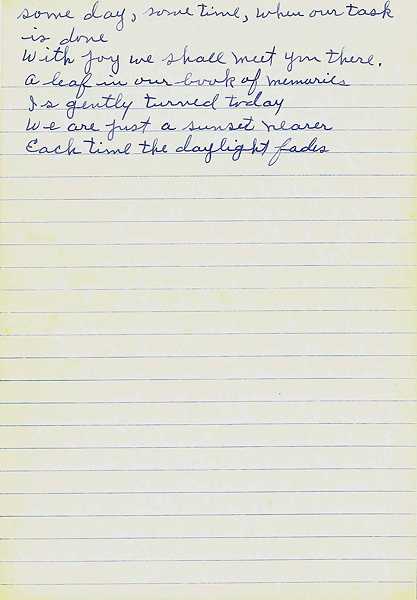 some day, some time, when our task
is done
With joy we shall meet you there.
A leaf in our book of memories
Is gently turned today
We are just a sunset nearer
Each time the daylight fades